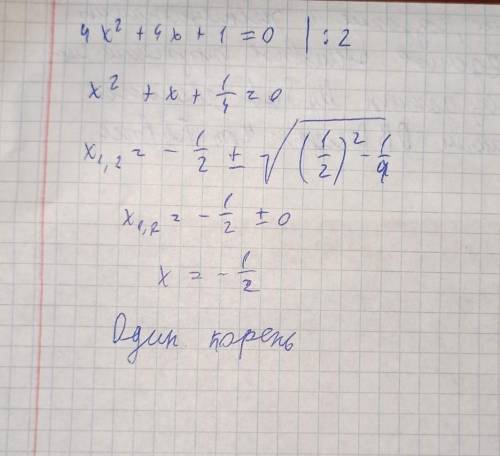 4x² + 4x + 1 = 0 | : 2
x² + x + 1/4 = 0
x₁,₂ = - 1/2 ± √((1/2)² - 1/4)
x₁,₂ = - 1/2 ± 0
x = - 1/2
Один корень